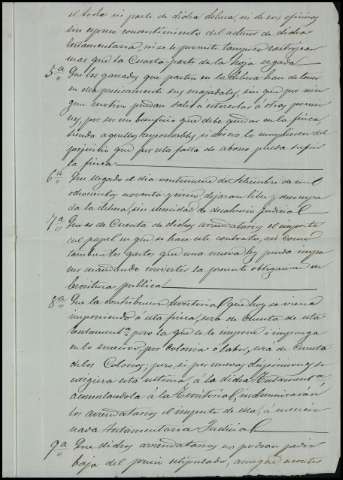 el todo ni parte de dicha dehesa, ni de sus oficinas
sin expreso consentimiento del actual de dicha
testamentaria, ni se le permite tampoco rastrojear
mas que la Cuarta parte de la hoja segada
5ª Que los ganados que pasten en la dehesa han de tener
en ella precisamente sus majadales, sin que por nin
gun motivo puedan salir a estercolar a otras posesio
nes, por ser un beneficio que debe quedar en la finca,
siendo aquellos responsables, si asi no lo cumpliesen del
perjuicio que por esta falta de abono pueda sufrir
la finca
6ª Que llegado el dia veintinueve de Setiembre de mil
ochocientos noventa y nueve dejaran libre y desocupa
da la dehesa, sin necesidad de desahucio Judicial
7ª Que es de Cuenta de dichos arrendatarios el importe
del papel en que se hace este contrato, asi como
tambien los gastos que una nueva ley pueda impo
ner mandando invertir la presente obligacion en
Escritura publica
8ª Que la contribucion territorial que hoy se viene
imponiendo a esta finca, sera de cuenta de esta
testamentª, pero la que se le impone o imponga
en lo sucesivo por colonia o labor, sera de cuenta
de los Colonos; pero si por nuevas disposiciones se
exigiera esta ultima, a la dicha Testamentª,
acumulandola a la Territorial, indemnizaran
los arrendatarios el importe de ella, a
esta Testamentaria Judicial
9ª Que dichos arrendatarios no podran pedir
baja del precio estipulado, aunque